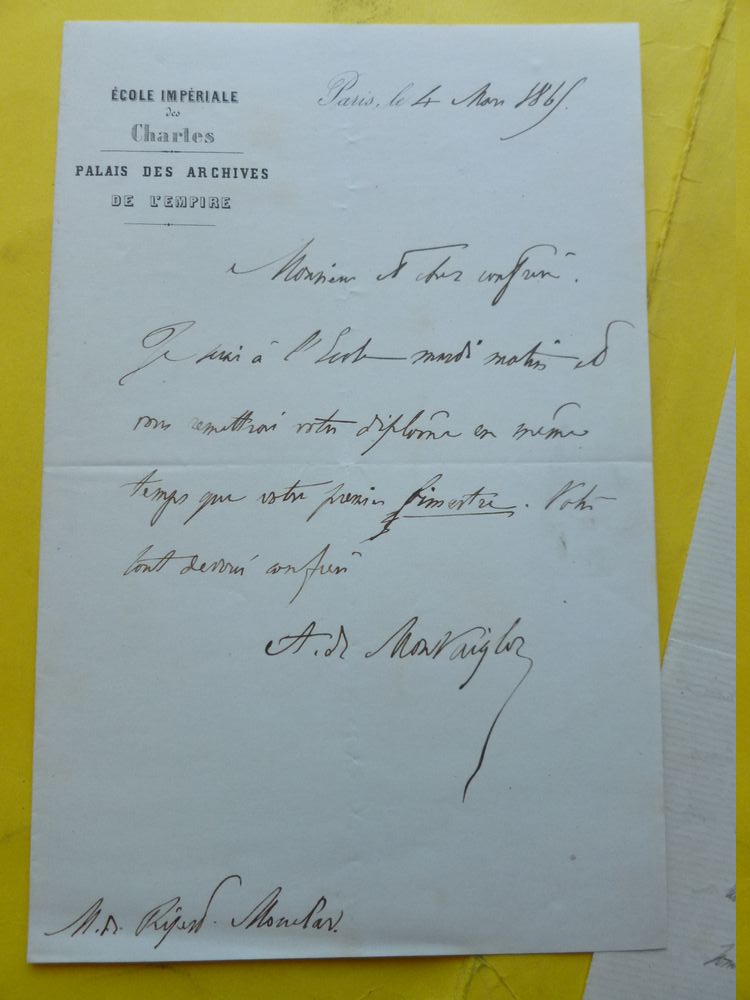 ÉCOLE IMPÉRIALE
des
Chartes
PALAIS DES ARCHIVES
DE L'EMPIRE
Paris, le 4 Mars 1865.
Monsieur et cher confrère.
Je serai à l'Ecole mardi matin et
vous remettrai votre diplôme en même
temps que votre premier trimestre. Votre
tout dévoué confrère
A. de Montaiglon
M. de Ripert-Monclar.